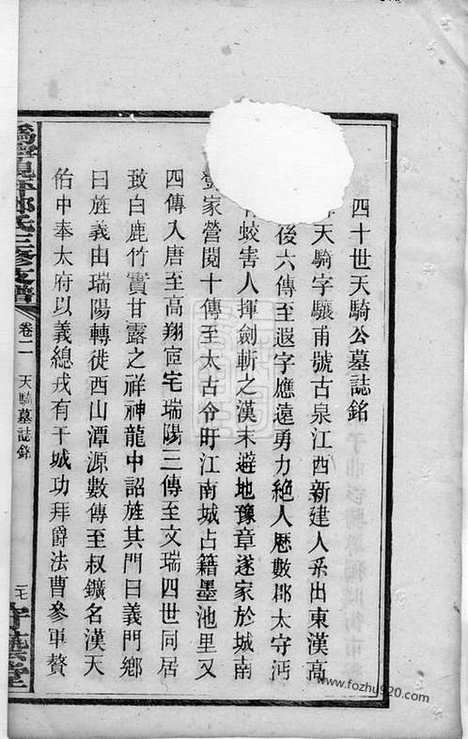 四十世天騎公墓誌銘
天騎字驤甫號古泉江西新建人系出東漢高
後六傳至遐字應遠勇力絕人歷數郡太守沔
蛟害人揮劍斬之漢末避地豫章遂家於城南
家營閱十傳至太古分盱江南城占籍墨池里又
四傳入唐至高翔宦宅瑞陽三傳至文瑞四世同居
致白鹿竹實甘露之祥神龍中詔旌其門曰義門鄉
曰旌義由瑞陽轉徙西山潭源數傳至叔鑛名漢天
佑中奉太府以義總戎有干城功拜爵法曹參軍贅
氏三修支譜
卷二
天騎墓誌銘
二七
堂
www.fozhu920.com